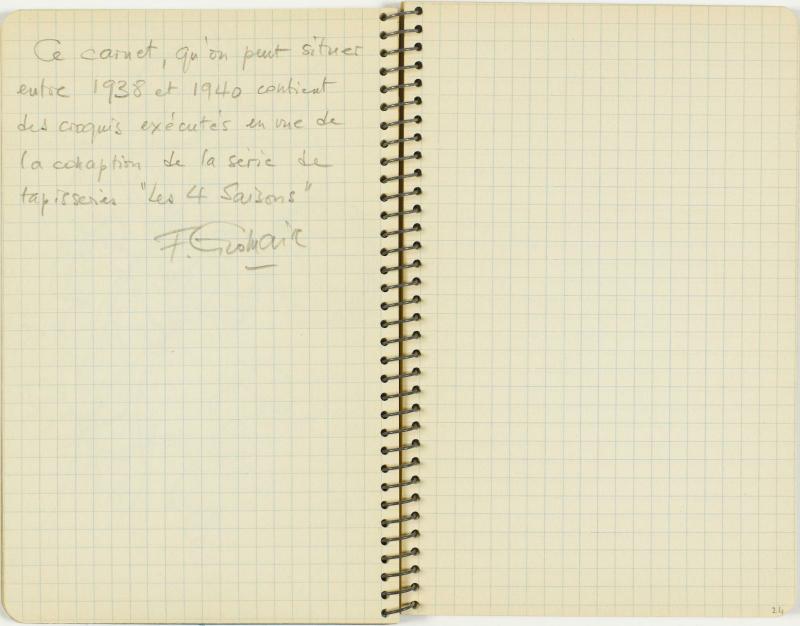 Ce carnet, qu'on peut situer
entre 1938 et 1940 contient
des croquis exécutés en vue de
la conception de la série de
tapisseries "Les 4 Saisons"
F. Gromaire
24